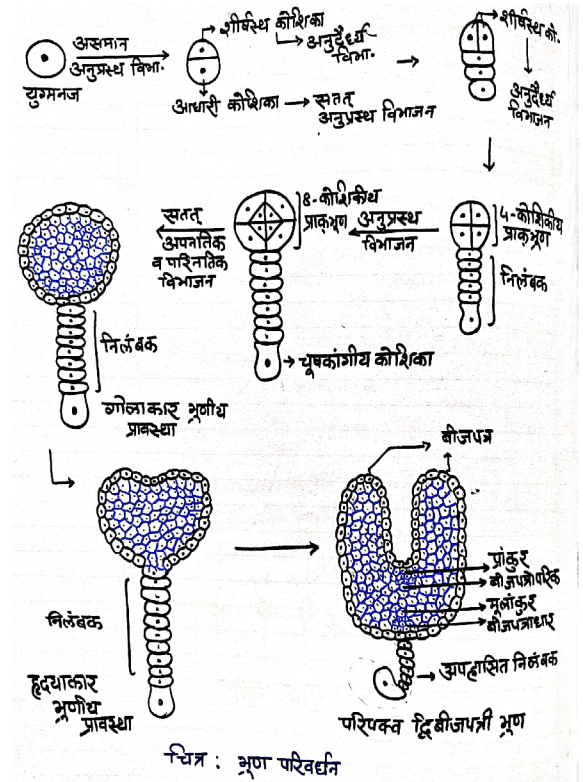 असमान
अनुप्रस्थ विभा.
युग्मनज
शीर्षस्थ कोशिका
अनुदैर्ध्य
विभा.
आधारी कोशिका → सतत्
अनुप्रस्थ विभाजन
शीर्षस्थ को.
अनुदैर्ध्य
विभाजन
4-कोशिकीय
प्राक्भ्रूण
निलंबक
अनुप्रस्थ
विभाजन
8-कोशिकीय
प्राक्भ्रूण
चूषकांगीय कोशिका
सतत्
अपनतिक
व परिनतिक
विभाजन
निलंबक
गोलाकार भ्रूणीय
प्रावस्था
निलंबक
हृदयाकार
भ्रूणीय
प्रावस्था
बीजपत्र
प्रांकुर
बीजपत्रोपरिक
मूलांकुर
बीजपत्राधार
अपह्रासित निलंबक
परिपक्व द्विबीजपत्री भ्रूण
चित्र : भ्रूण परिवर्धन